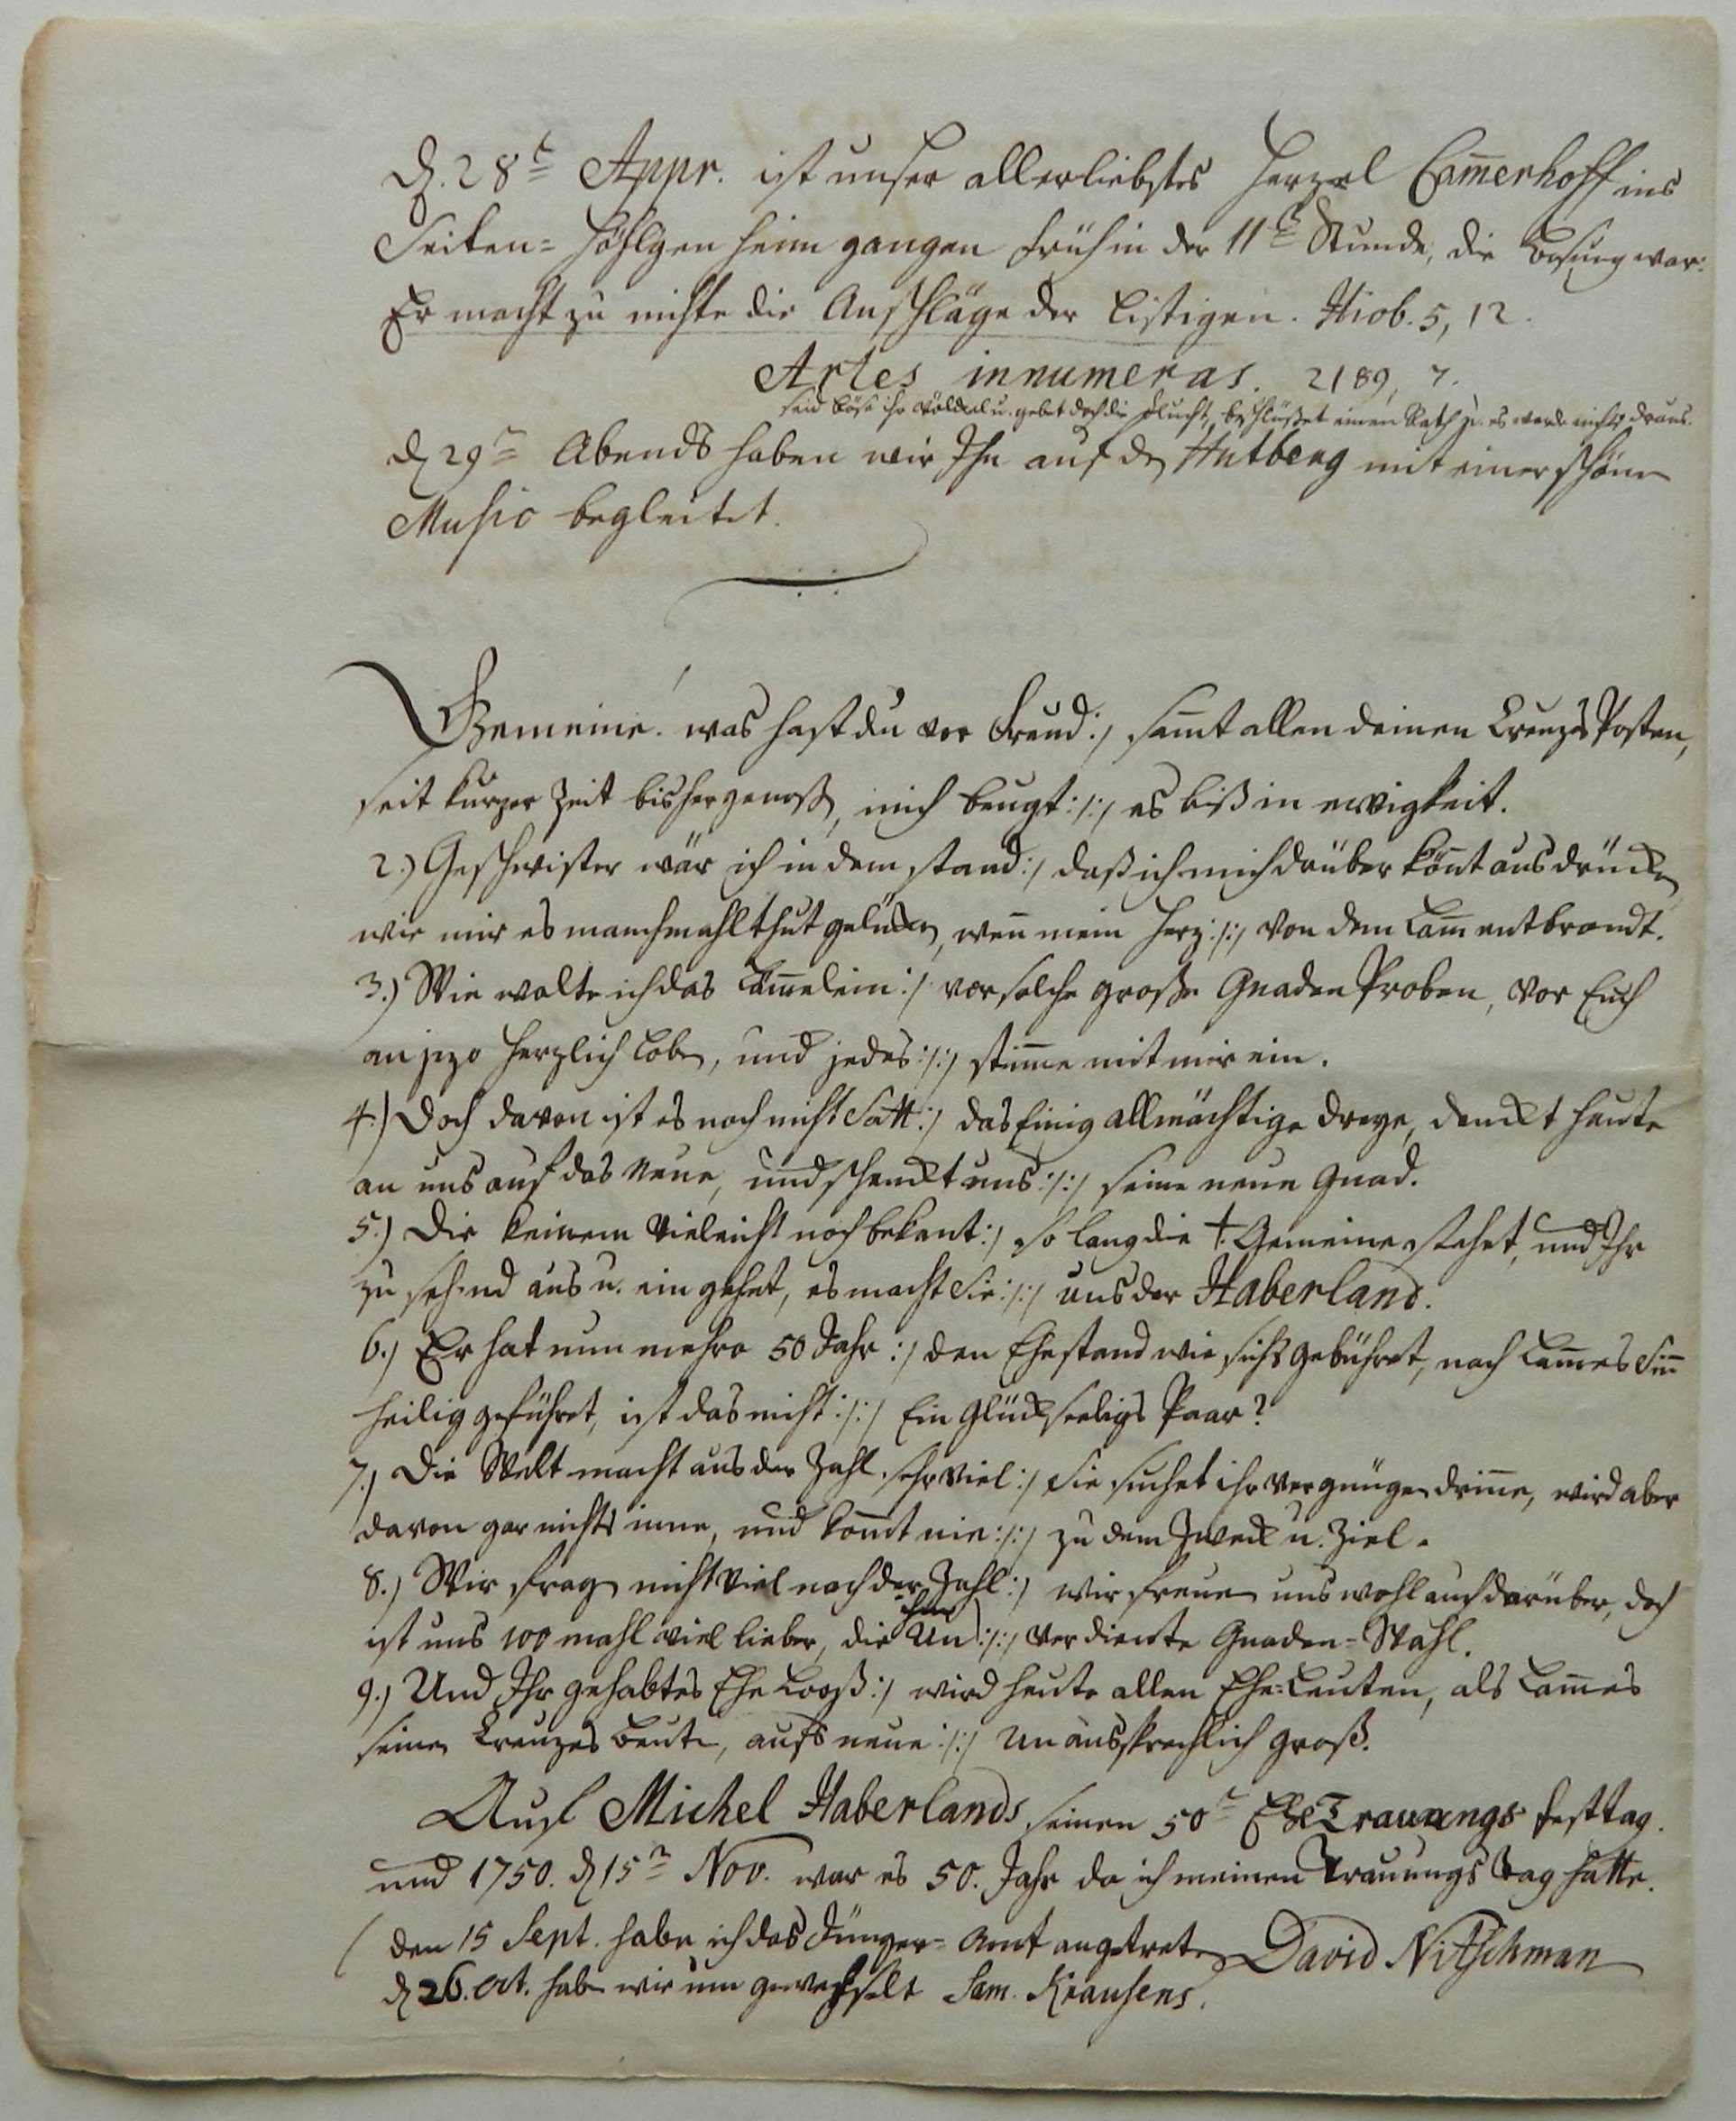 D. 28t Appr. ist unser allerliebstes Herzel Cam̄erhoff ins
Seiten= Höhlgen heim gangen früh in der 11t Stunde, die Losung war:
Er macht zu nichte die Anschläge der Listigen. Hiob. 5, 12.
Artes innumeras. 2189, 7.
seid böse ihr Völcker u. gebet doch die Flucht, beschlüßet einen Rath p. es werde nichts draus.
d 29n Abends haben wir Ihn auf den Hutberg mit einer schönen
Music begleitet.
Gemeine! was hast du vor Freud :/ samt allen deinen Creuzes Posten,
seit kurzer Zeit bisher genoß, mich beugt :/:/ es biß in ewigkeit.
2.) Geschwister wär ich in dem stand :/ daß ich mich drüber kön̄t ausdrücken
wie mir es manchmahl thut gelücken, wen̄ mein Herz :/:/ von dem Lam̄ entbrandt.
3.) Wie wolte ich das Läm̄elein :/ vor solche große Gnaden Proben, vor Euch
an jezo herzlich loben, und jedes :/:/ stim̄e mit mir ein.
4.) Doch davon ist es noch nicht Satt :/ das Einig allmächtige Dreye, denckt heute
an uns auf das Neue, und schenckt uns :/:/ seine neue Gnad.
5.) Die keinem Vieleicht noch bekant :/ so lang die † Gemeine stehet, und Ihr
zu sehend aus u. ein gehet, es macht Sie :/:/ uns der Haberland.
6.) Er hat nun mehro 50 Jahr :/ den Ehestand wie sichs gebühret, nach Lam̄es Sin̄
heilig geführet, ist das nicht :/:/ Ein Glückseeligs Paar?
7.) Die Welt macht aus der Zahl sehr Viel :/ sie suchet ihr Vergnügen drin̄e, wird aber
davon gar nichts inne, und kom̄t nie :/:/ zu dem Zweck u. Ziel.
8.) Wir fragen nicht Viel nach der Zahl :/ wir freuen uns wohl auch darüber, doch
ist uns 100 mahl viel lieber, die ihnen Un :/:/ Verdiente Gnaden=Wahl.
9.) Und Ihr gehabtes Ehe Looß :/ wird heute allen Ehe=Leuten, als Lam̄es
seiner Creuzes Beute, aufs neue :/:/ Un aussprechlich groß.
Auf Michel Haberlands seinen 50t Ehe Trauungs festtag.
und 1750. d 15n Nov. war es 50. Jahr da ich meinen Trauungs Tag hatte.
( den 15 Sept. habe ich das Jünger= Amt angetreten David Nitschman
d 26. Oct. haben wir um gewechselt Sam. Krausens.